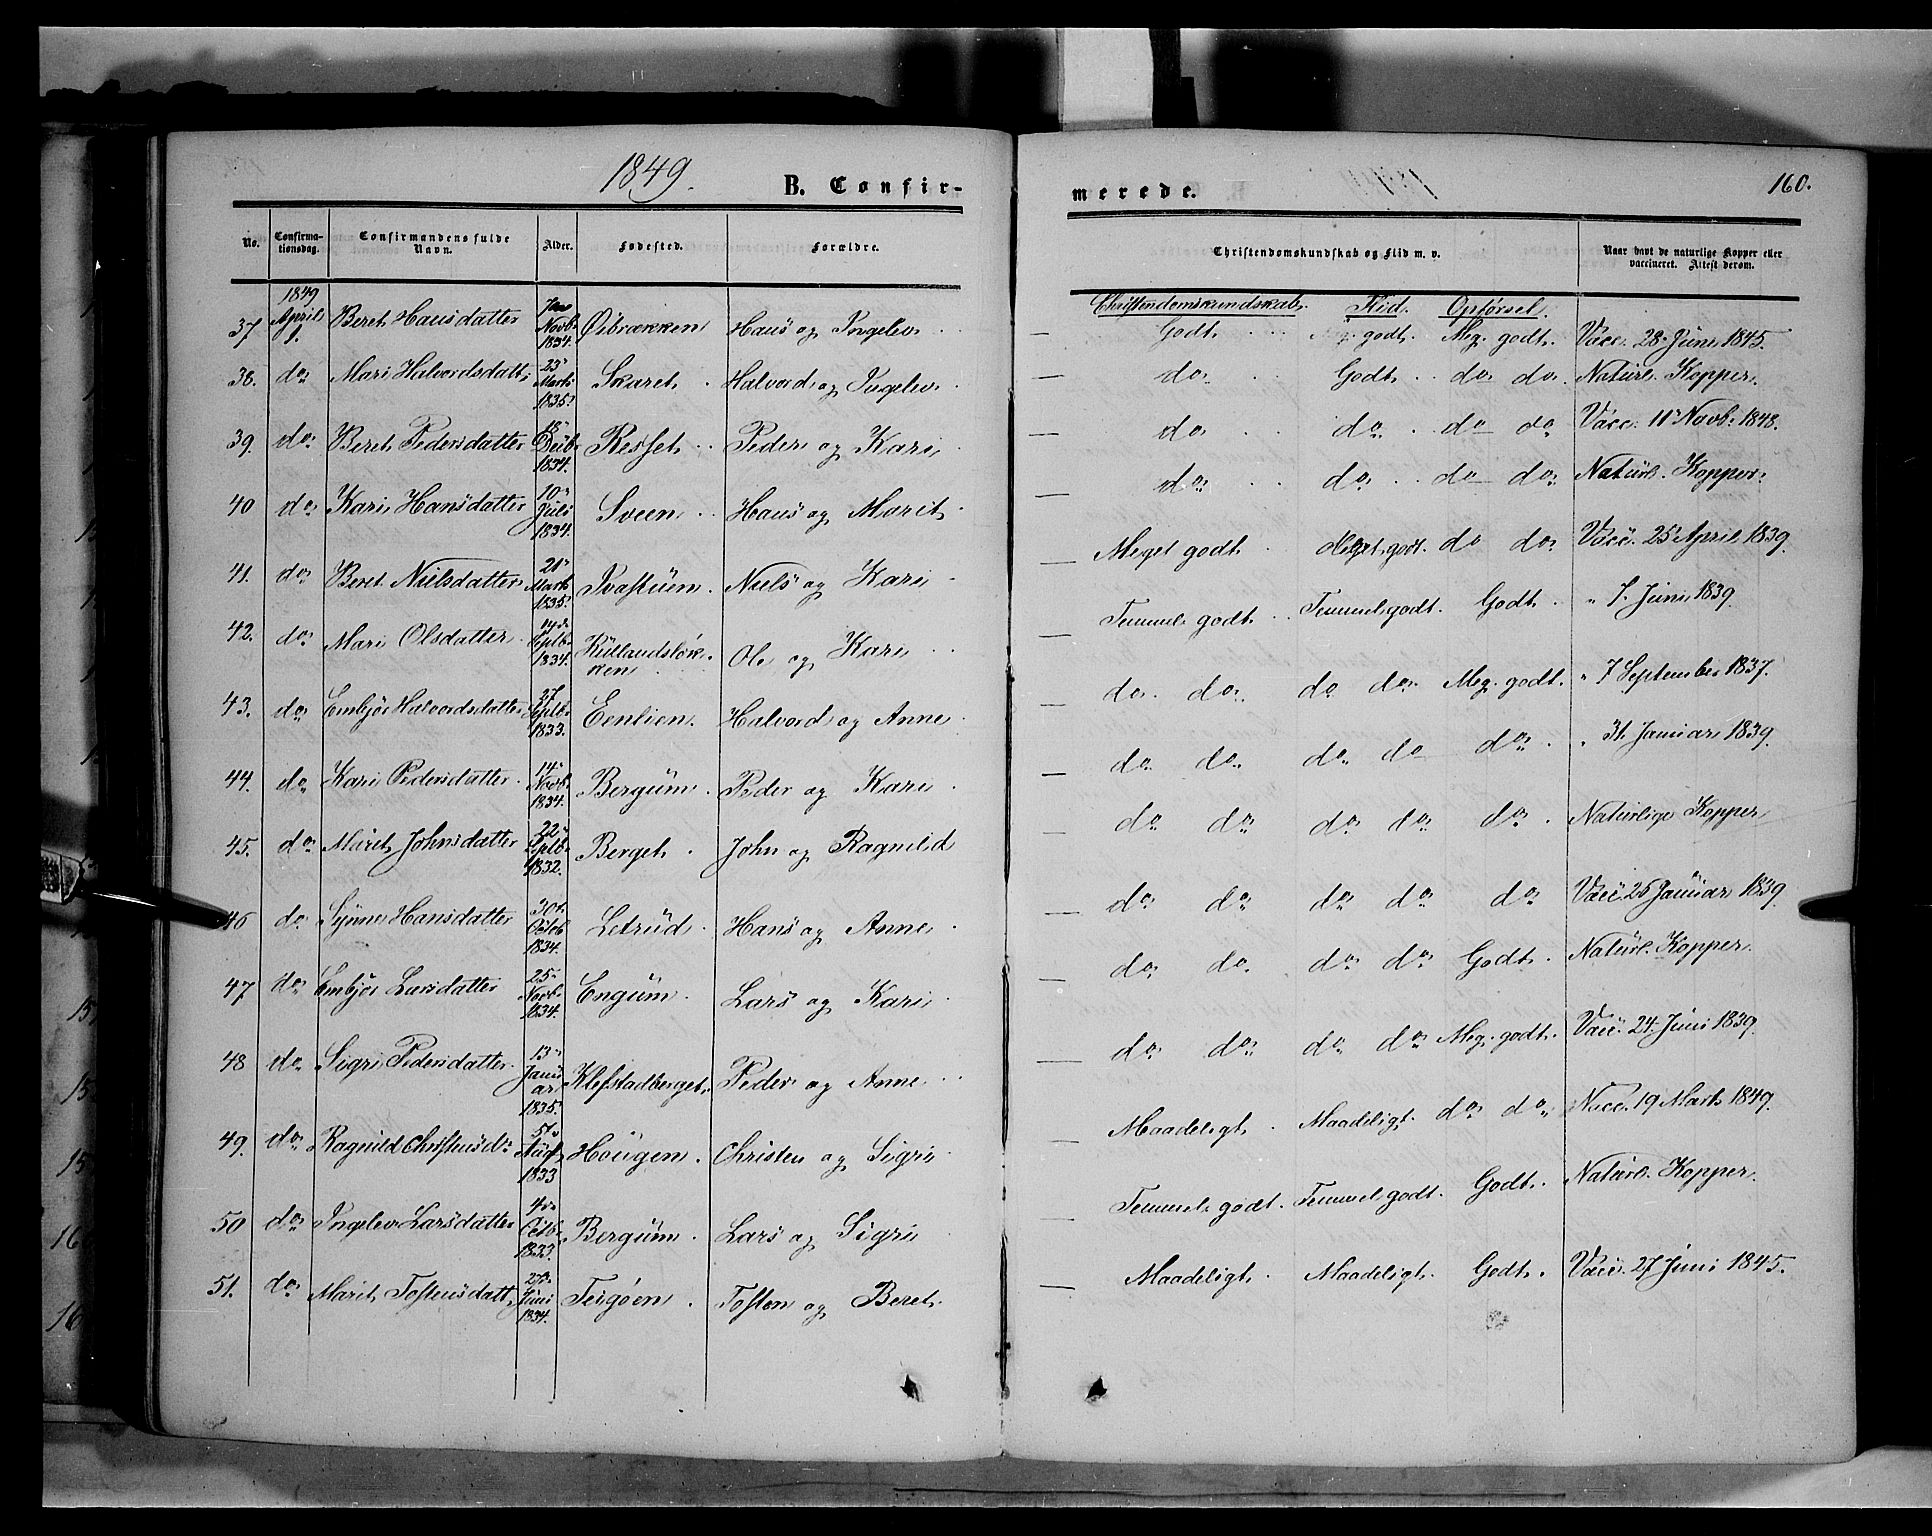 1849.
B. Confir-
merede.
160.
No. Confirma-tionsdag. Confirmandens fulde Navn. Alder. Fødested. Forældre. Christendomskundskab og Flid m. v. Naar havt de naturlige Kopper eller vaccineret. Attest derom.
Christendomskundskab. Flid. Opførsel.
37 1849 April 1. Beret Hansdatter Novb. 1834. Øibrækken Hans og Ingelev Godt Meg. godt. Meg. godt. Vacc. 28 Juni 1845.
38. do Mari Halvordsdatt. 23 Marts 1835. Skaret Halvord og Ingelev do Godt do do. Naturl. Kopper.
39. do Beret Pedersdatter 18 Decb. 1834. Resset Peder og Kari do do do do Vacc. 11 Novb. 1848.
40 do Kari Hansdatter 10 Juli 1834. Sveen Hans og Marit do do do do Naturl. Kopper
41. do Beret Nielsdatter 21 Marts 1835. Ivastuen Niels og Kari Meget godt Meget godt. do do Vacc. 25 April 1839.
42. do Mari Olsdatter 14 Septb. 1834. Ole og Kari Temmel. godt Temmel. godt. Godt " 7. Juni 1839.
43. do Embjør Halvordsdatter 27 Septb. 1833. Eenlien. Halvord og Anne do do do do Meg. godt. " 7 September 1837.
44. do Kari Pedersdatter 14 Novb. 1834. Bergum Peder og Kari do do do do do " 31. Januar 1839.
45. do Marit Johnsdatter 22 Septb. 1832. Berget John og Ragnild do do do do do Naturlige Kopper
46 do Synne Hansdatter 30 Octob 1834. Letrud Hans og Anne do do do do do Vacc. 25 Januar 1839.
47 do Embjør Larsdatter 25 Novb. 1834. Engum Lars og Kari do do do do Godt Naturl. Kopper.
48 do Sigri Pedersdatter 13 Januar 1835. Klefstadberget Peder og Anne do do do do Meg. godt. Vacc. 24. Juni 1839.
49. do Ragnild Christensd. 1833 Hougen Christen og Sigri Maadeligt Maadeligt. do do Vacc. 19 Marts 1849.
50 do Ingelev Larsdatter 4 Octb. 1833. Bergum Lars og Sigri Temmel. godt. Temmel. godt. Godt. Naturl. Kopper.
51. do Marit Tostensdatt. Juni 1834. Tosten og Beret Maadeligt Maadeligt. Godt. Vacc. 27 Juni 1845.